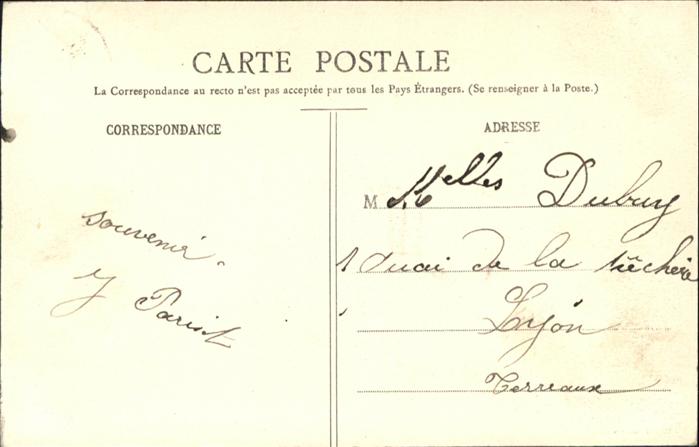 CARTE POSTALE
La Correspondance au recto n'est pas acceptée par tous les Pays Étrangers. (Se renseigner à la Poste.)
CORRESPONDANCE
souvenir
J Parisot
ADRESSE
M Melles Dubuy
1 Quai de la Pêcherie
Lyon
Terreaux